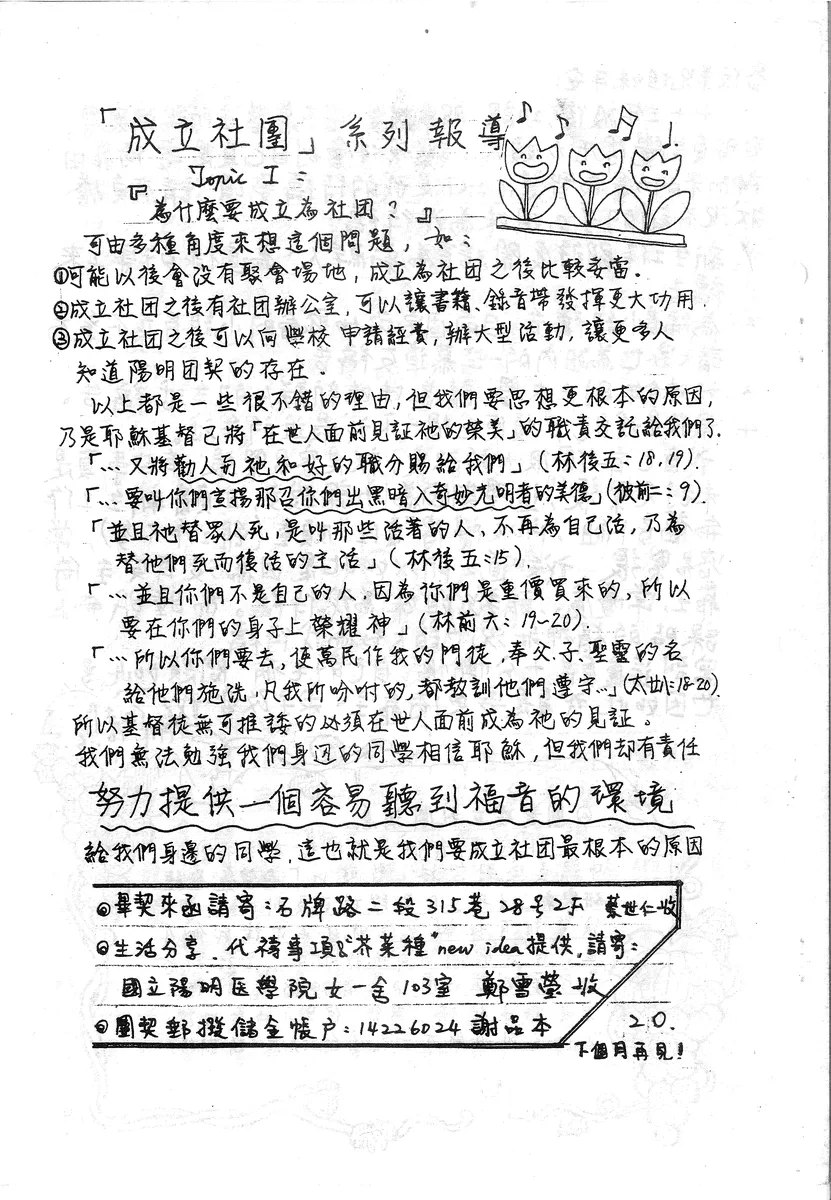 「成立社團」系列報導
Topic I：
『為什麼要成立為社团？』
可由多種角度來想這個問題，如：
①可能以後會沒有聚會場地，成立為社团之後比較妥當．
②成立社团之後有社团辦公室，可以讓書籍、錄音帶發揮更大功用．
③成立社团之後可以向學校申請經費，辦大型活動，讓更多人
知道陽明团契的存在．
以上都是一些很不錯的理由，但我們要思想更根本的原因，
乃是耶穌基督已將「在世人面前見証祂的榮美」的職責交託給我們了．
「…又將勸人與祂和好的職分賜給我們」（林後五：18，19）．
「…要叫你們宣揚那召你們出黑暗入奇妙光明者的美德」（彼前二：9）．
「並且祂替眾人死，是叫那些活著的人，不再為自己活，乃為
替他們死而復活的主活」（林後五：15）．
「…並且你們不是自己的人，因為你們是重價買來的，所以
要在你們的身子上榮耀神」（林前六：19~20）．
「…所以你們要去，使萬民作我的門徒，奉父．子．聖靈的名
給他們施洗，凡我所吩咐的，都教訓他們遵守…」（太廿八：18-20）．
所以基督徒無可推諉的必須在世人面前成為祂的見証。
我們無法勉強我們身边的同學相信耶穌，但我們却有責任
努力提供一個容易聽到福音的環境
給我們身邊的同學，這也就是我們要成立社团最根本的原因
◎畢契來函請寄：石牌路二段315巷28号2F 蔡世仁收
◎生活分享．代禱事項&"芥菜種"new idea提供，請寄：
國立陽明医學院女一舍103室 鄭雪瑩收
◎團契郵撥儲金帳户：14226024 謝品本
20.
下個月再見！